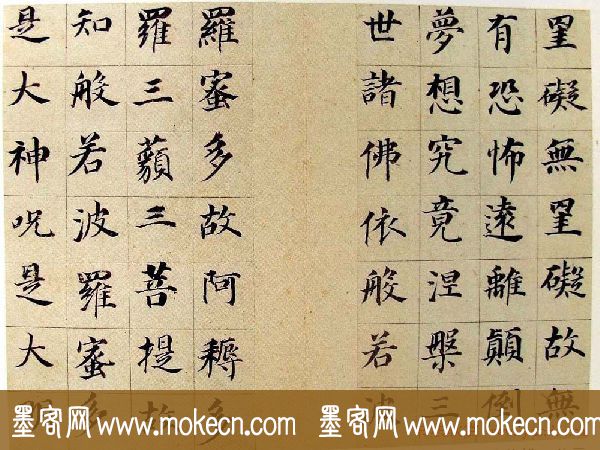 罣礙無罣礙故無
有恐怖遠離顛倒
夢想究竟涅槃三
世諸佛依般若波
羅蜜多故阿耨多
羅三藐三菩提故
知般若波羅蜜多
是大神呪是大明
墨客网 www.mokecn.com 墨客网 www.mokecn.com